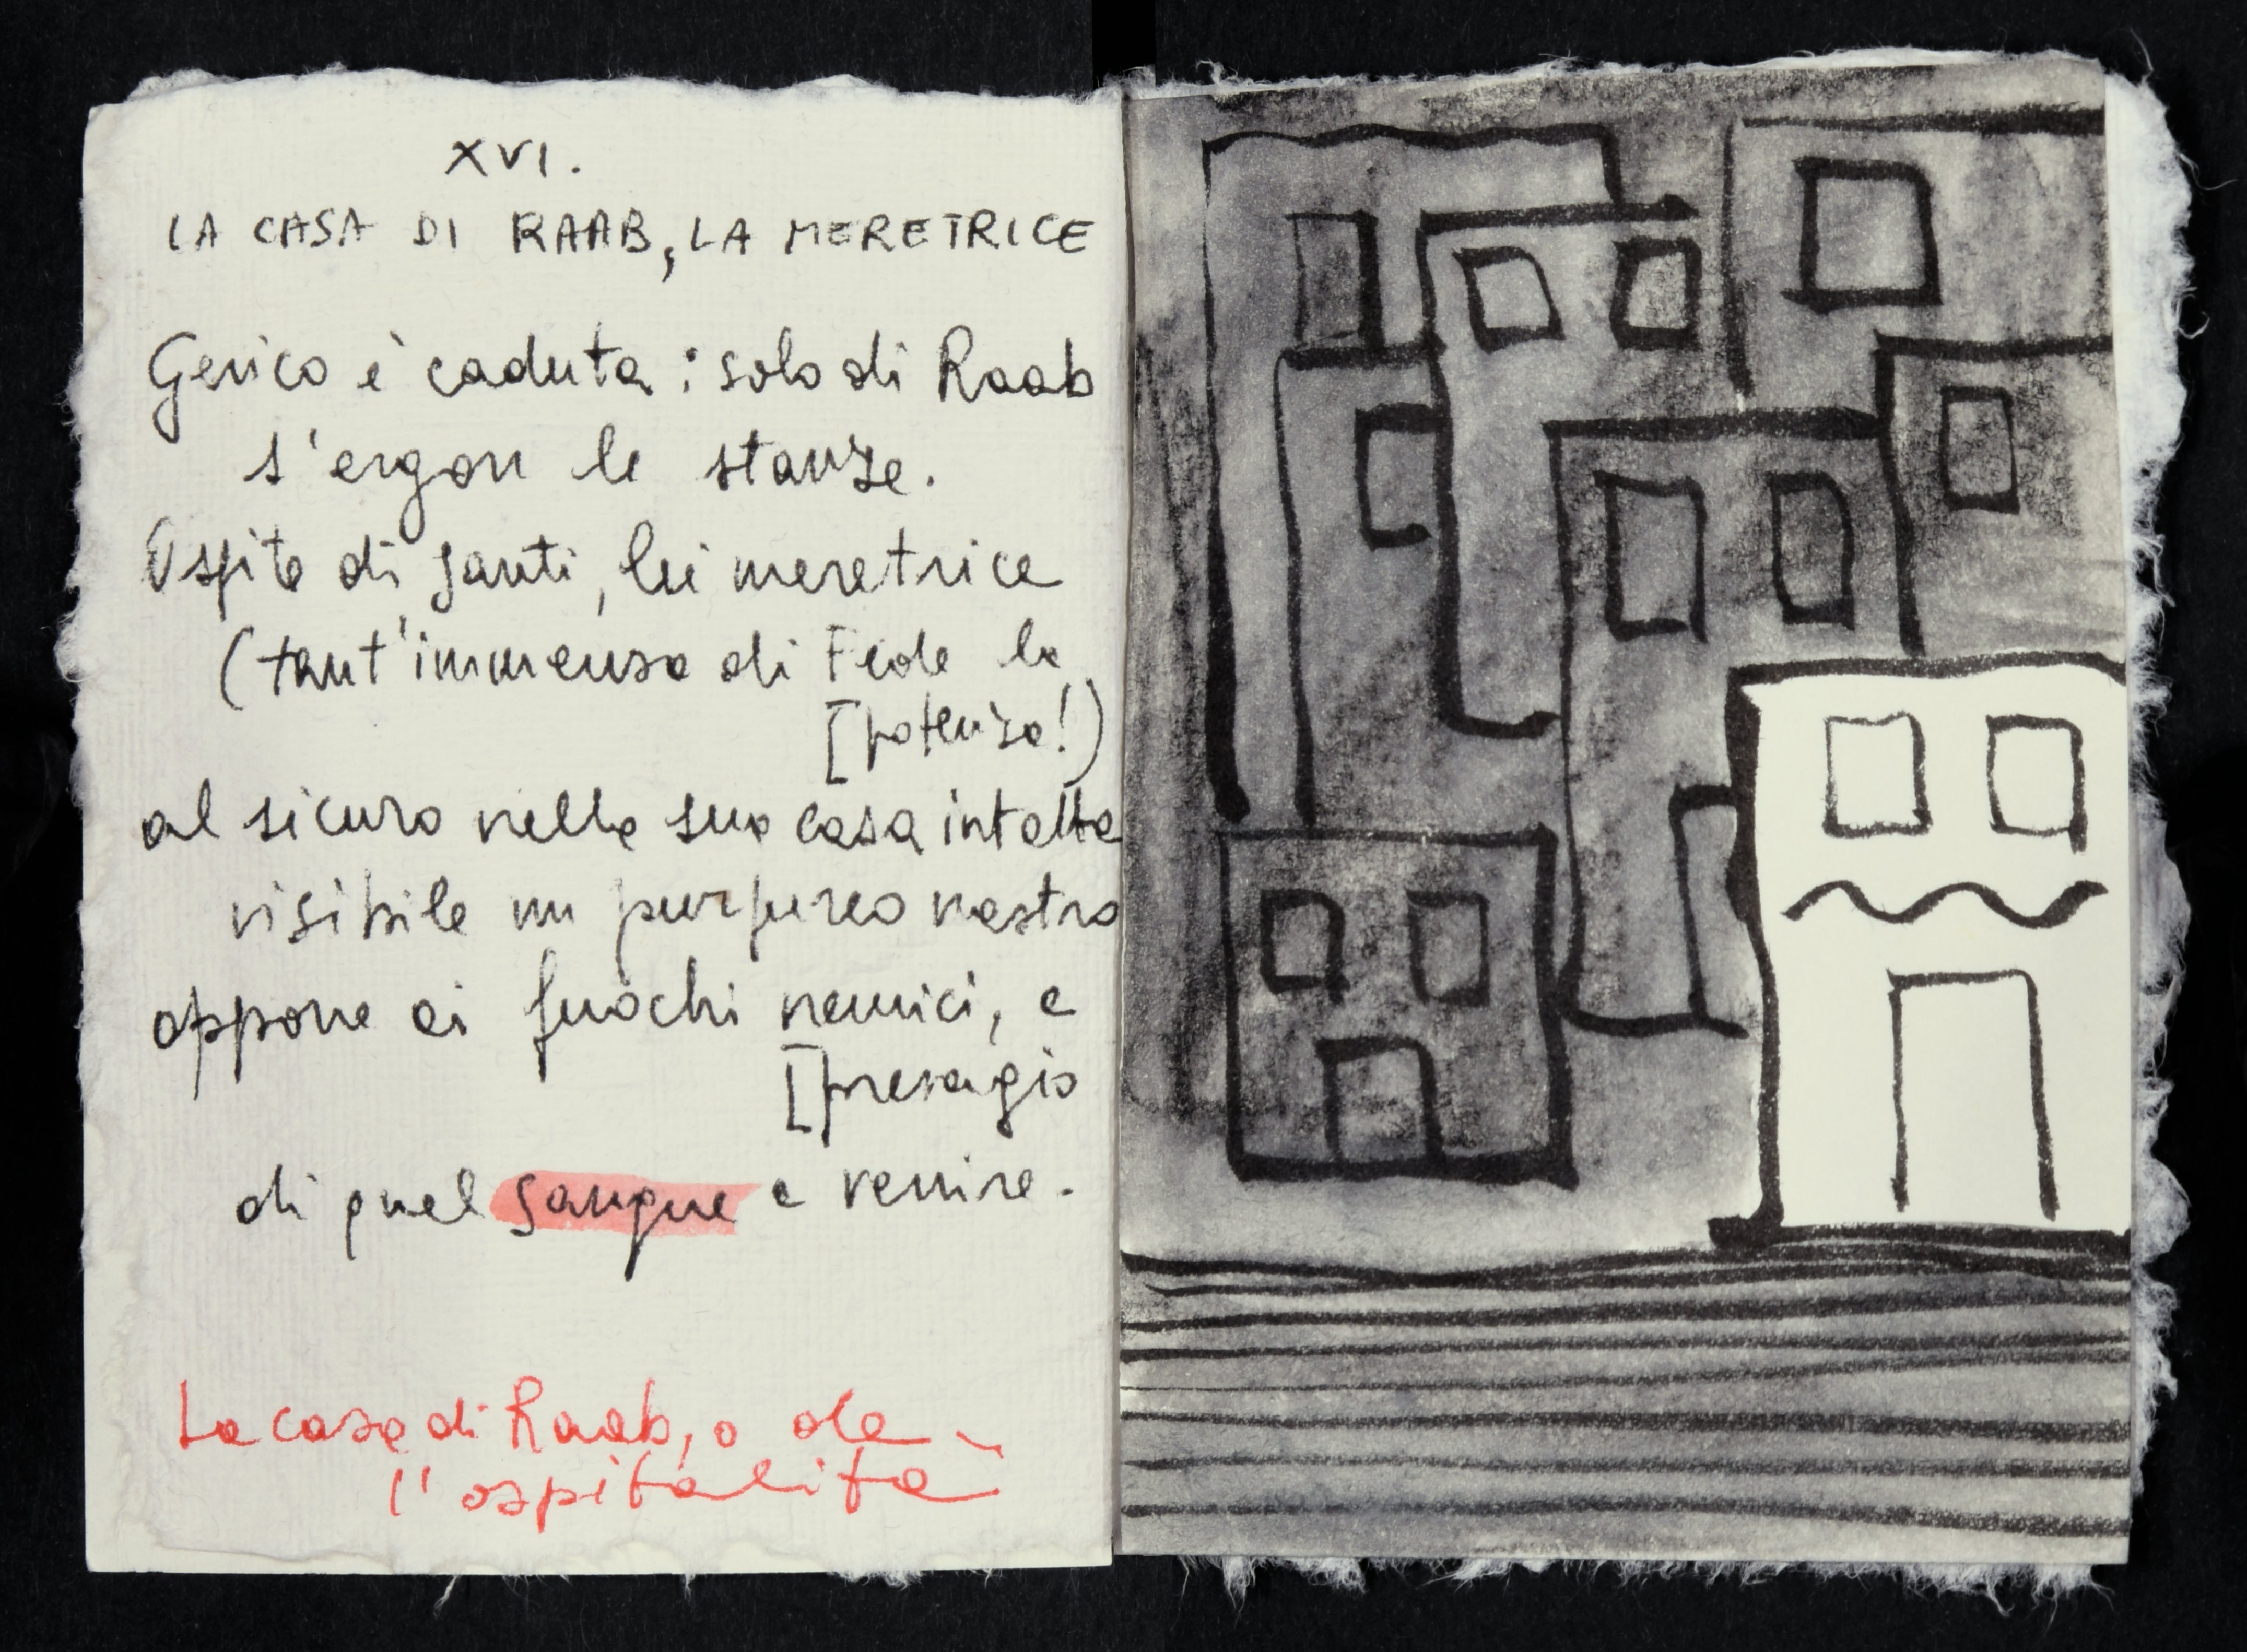 XVI.
LA CASA DI RAAB, LA MERETRICE
Gerico è caduta: solo di Raab
s'ergon le stanze.
Ospite di santi, lei meretrice
(tant'immensa di Fede la
[potenza!)
al sicuro nella sua casa intatta
visibile un purpureo nastro
oppone ai fuochi nemici, e
[presagio
di quel sangue a venire.
La casa di Raab, o del-
l'ospitalità